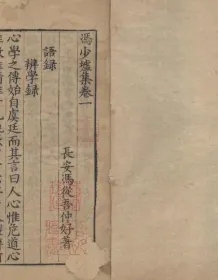 馮少墟集卷一
長安馮從吾仲好著
語録
辨學録
心學之傳始自虞廷而其言曰人心惟危道心